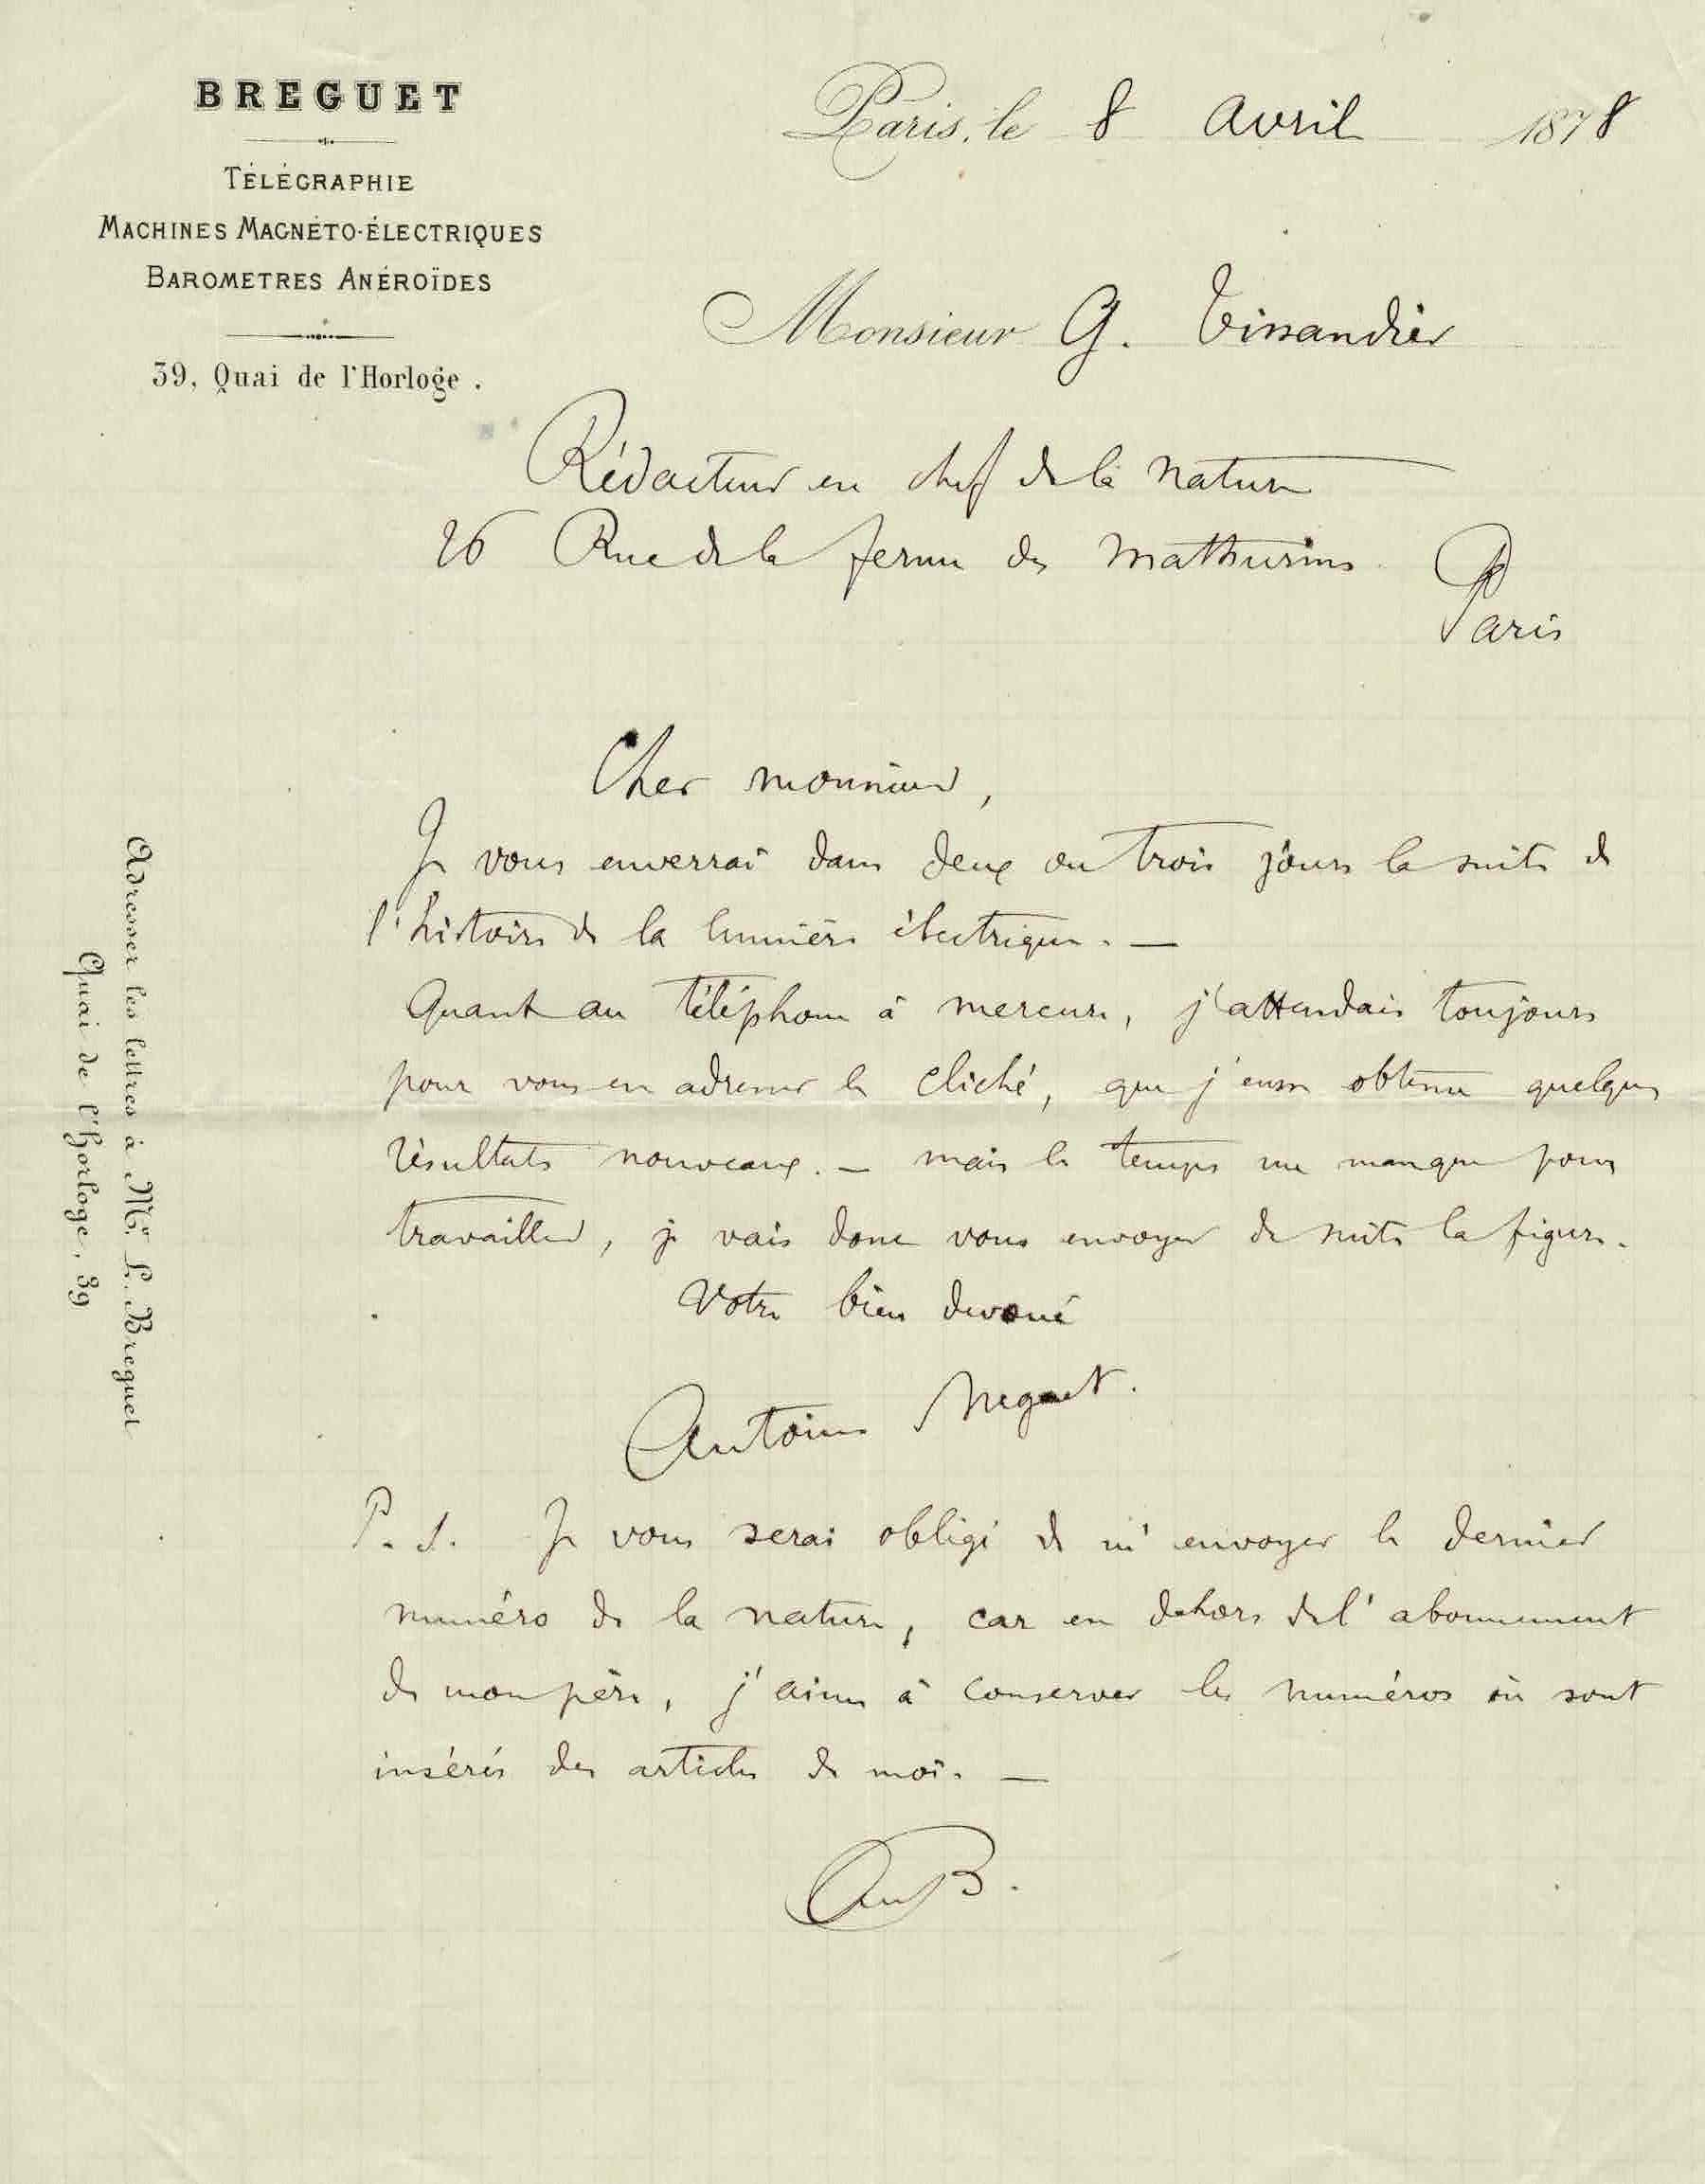 BREGUET
TÉLÉGRAPHIE
MACHINES MAGNÉTO-ÉLECTRIQUES
BAROMETRES ANÉROÏDES
39, Quai de l'Horloge.
Paris, le 8 Avril 1878
Monsieur G. Tissandier
Rédacteur en chef de la Nature
26 Rue de la ferme des Mathurins
Paris
Adresser les lettres à Mr. L. Breguet
Quai de l'horloge, 39
Cher monsieur,
Je vous enverrai dans deux ou trois jours la suite de
l'histoire de la lumière électrique. —
Quant au téléphone à mercure, j'attendais toujours
pour vous en adresser le cliché, que j'eusse obtenu quelques
résultats nouveaux. — mais le temps me manque pour
travailler, je vais donc vous envoyer de suite la figure.
Votre bien dévoué
Antoine Breguet.
P. S. Je vous serai obligé de m'envoyer le dernier
numéro de la nature, car en dehors de l'abonnement
de mon père, j'aime à conserver les numéros où sont
insérés des articles de moi. —
Ant B.